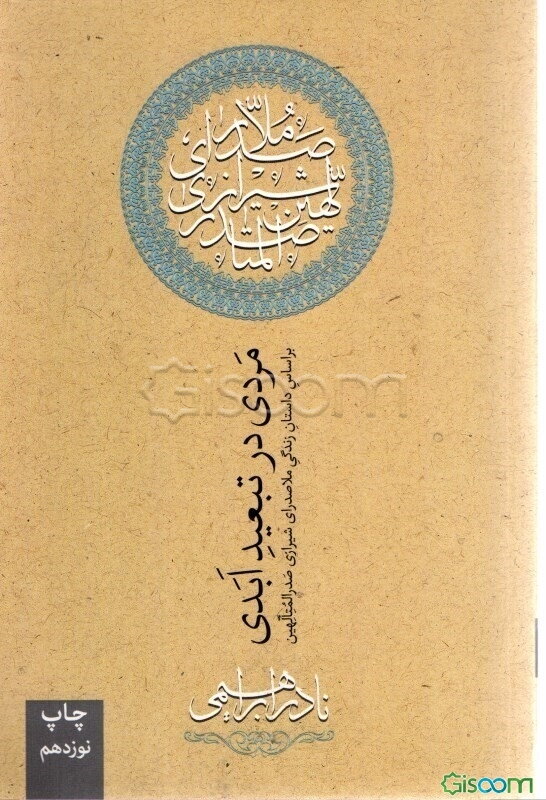 ملّا صدرای
شیرازی
صدر المتألّهین
مَردی در تبعیدِ اَبَدی
براساسِ داستانِ زندگیِ ملاصدرای شیرازی صَدرالمُتِألّهین
نادر ابراهیمی
چاپ
نوزدهم
Gisoom
Gisoom